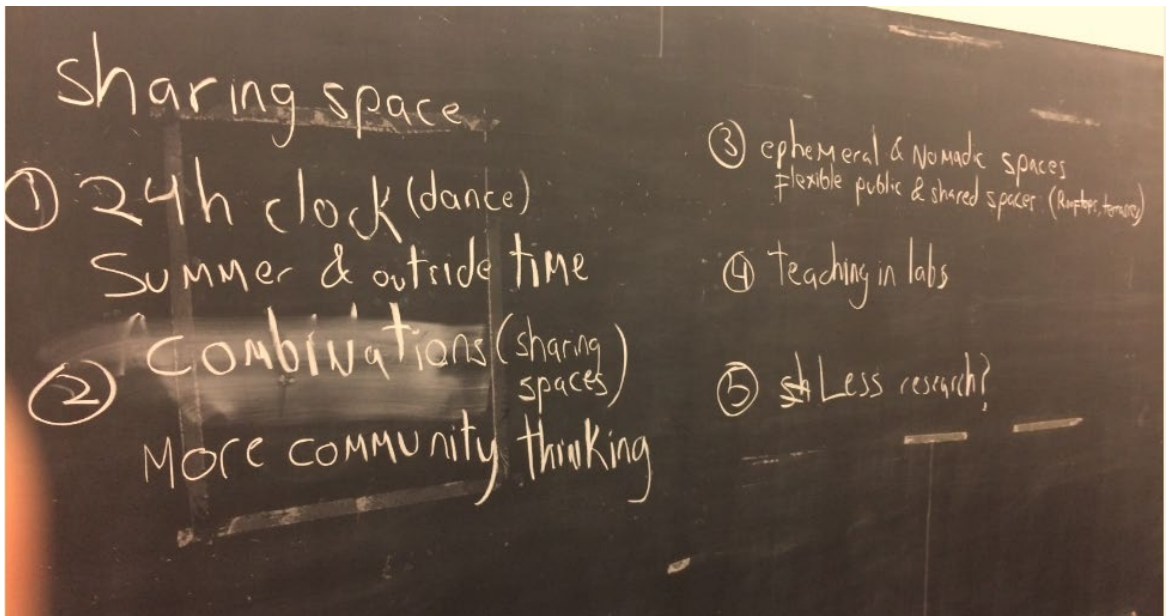 sharing space
① 24h clock (dance)
Summer & outside time
② Combinations (sharing
spaces)
More community thinking
③ ephemeral & Nomadic spaces
Flexible public & shared spaces (Rooftops, terraces)
④ Teaching in labs
⑤ Less research?